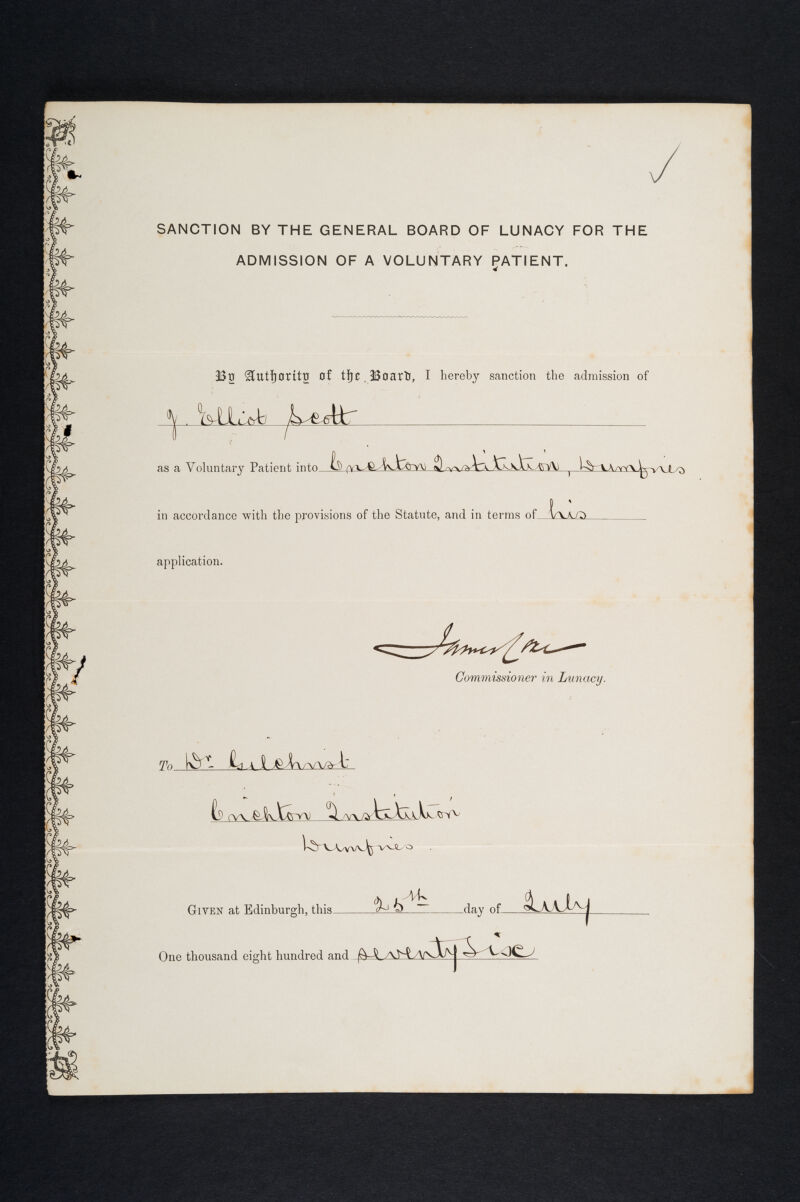 SANCTION BY THE GENERAL BOARD OF LUNACY FOR THE
ADMISSION OF A VOLUNTARY PATIENT.
By Authority of the Board, I hereby sanction the admission of
J. Elliot Scott
as a Voluntary Patient into Crichton Institution, Dumfries
in accordance with the provisions of the Statute, and in terms of his
application.
James Coxe
Commissioner in Lunacy.
To Dr. Gilchrist
Crichton Institution
Dumfries.
GIVEN at Edinburgh, this 25th day of July
One thousand eight hundred and seventy Six